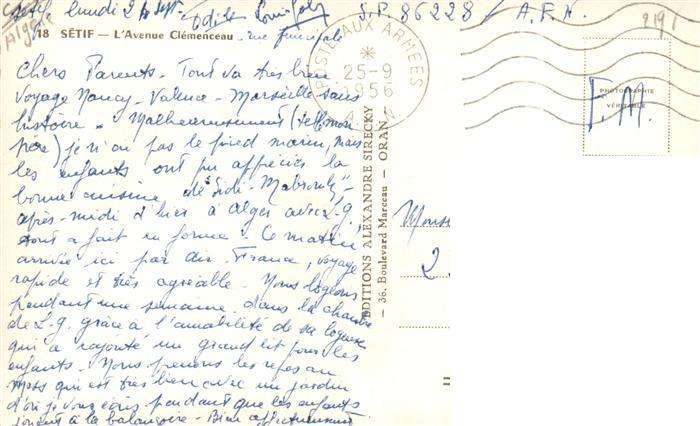 Sétif, lundi 24 sept.
S.P. 86228 / A.F.N.
2191
Algérie
18 SÉTIF — L'Avenue Clémenceau - rue principale
POSTE AUX ARMÉES
25-9
1956
A.F.N
PHOTOGRAPHIE
VÉRITABLE
F.M.
Chers Parents - Tout va très bien
Voyage Nancy - Valence - Marseille sans
histoire. Malheureusement (telle mon
père) je n'ai pas le pied marin, mais
les enfants ont pu apprécier la
bonne cuisine du "Sidi-Mabrouk" -
après-midi d'hier à Alger avec L.g.
tout à fait en forme - Ce matin
arrivée ici par Air-France, voyage
rapide et très agréable - Nous logeons
pendant une semaine dans la chambre
de L.g. grâce à l'amabilité de sa logeuse
qui a rajouté un grand lit pour les
enfants - Nous prenons les repas au
mess qui est très bien avec un jardin
d'où je vous écris pendant que les enfants
jouent à la balançoire - Bien affectueusement
EDITIONS ALEXANDRE SIRECKY
— 36, Boulevard Marceau — ORAN
2